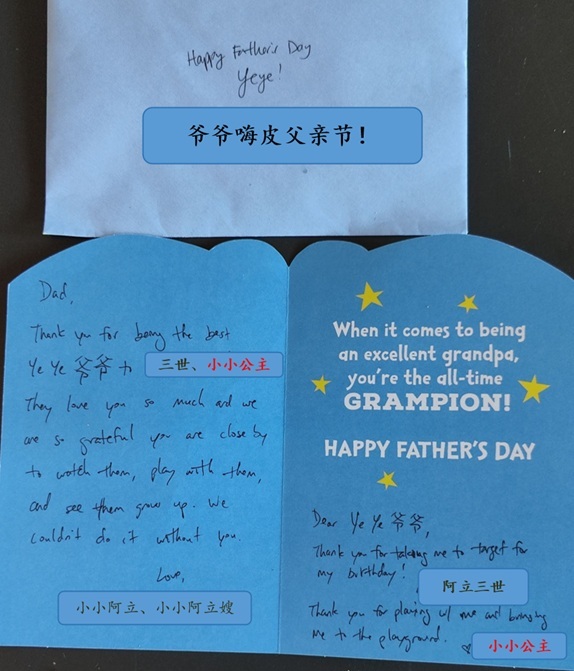 Happy Father's Day
Yeye!
爷爷嗨皮父亲节!
Dad,
Thank you for being the best
Ye Ye 爷爷 to 三世、小小公主
They love you so much and we
are so grateful you are close by
to watch them, play with them,
and see them grow up. We
couldn't do it without you.
Love,
小小阿立、小小阿立嫂
When it comes to being
an excellent grandpa,
you're the all-time
GRAMPION!
HAPPY FATHER'S DAY
Dear Ye Ye 爷爷,
Thank you for taking me to target for
my birthday!
阿立三世
Thank you for playing w/ me and bringing
me to the playground.
小小公主